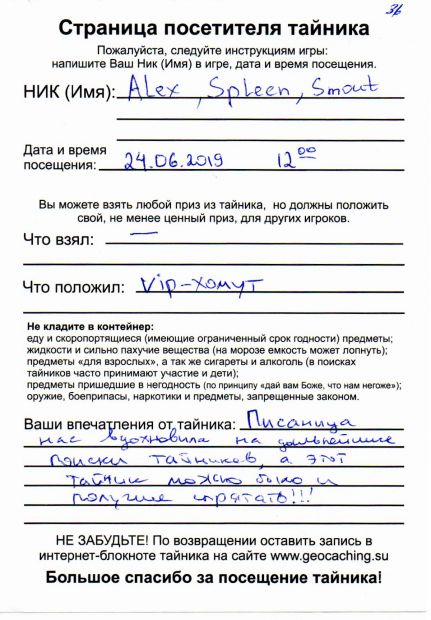 36
Страница посетителя тайника
Пожалуйста, следуйте инструкциям игры:
напишите Ваш Ник (Имя) в игре, дата и время посещения.
НИК (Имя): Alex, Spleen, Smout
Дата и время
посещения: 24.06.2019 12 00
Вы можете взять любой приз из тайника, но должны положить
свой, не менее ценный приз, для других игроков.
Что взял: —
Что положил: Vip-хомут
Не кладите в контейнер:
еду и скоропортящиеся (имеющие ограниченный срок годности) предметы;
жидкости и сильно пахучие вещества (на морозе емкость может лопнуть);
предметы «для взрослых», а так же сигареты и алкоголь (в поисках
тайников часто принимают участие и дети);
предметы пришедшие в негодность (по принципу «дай вам Боже, что нам негоже»);
оружие, боеприпасы, наркотики и предметы, запрещенные законом.
Ваши впечатления от тайника: Писаница
нас вдохновила на дальнейшие
поиски тайников, а этот
тайник можно было и
получше спрятать!!!
НЕ ЗАБУДЬТЕ! По возвращении оставить запись в
интернет-блокноте тайника на сайте www.geocaching.su
Большое спасибо за посещение тайника!